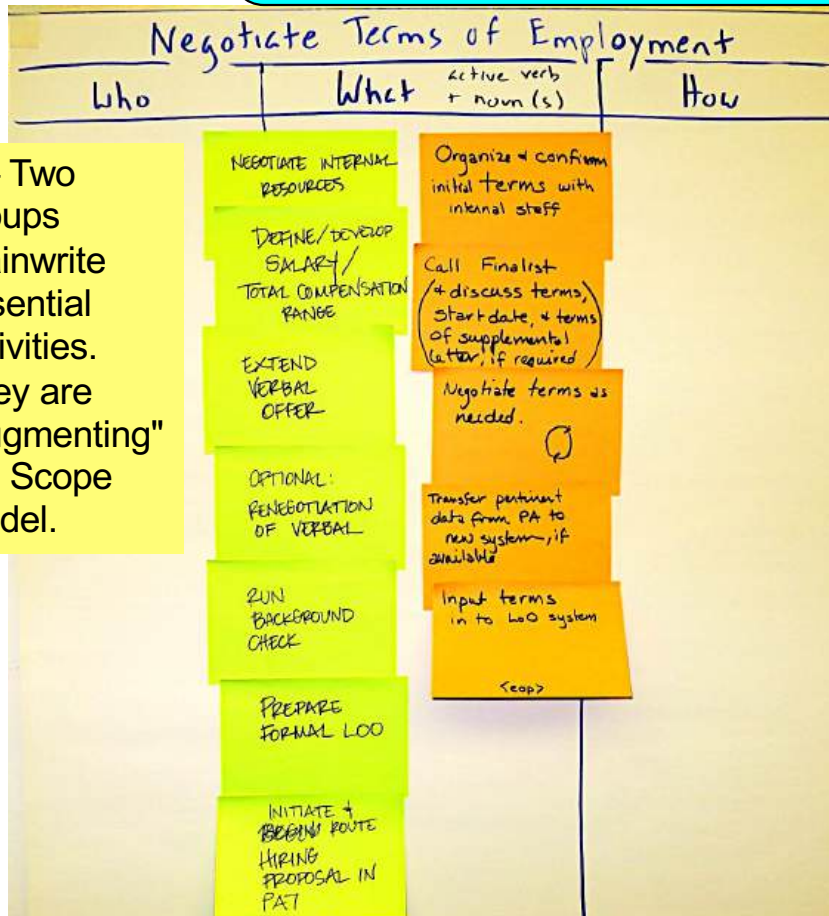 Negotiate Terms of Employment
Who
What
active verb
+ noun(s)
How
Two
oups
ainwrite
sential
ivities.
ey are
ugmenting"
Scope
del.
NEGOTIATE INTERNAL
RESOURCES
DEFINE/DEVELOP
SALARY/
TOTAL COMPENSATION
RANGE
EXTEND
VERBAL
OFFER
OPTIONAL:
RENEGOTIATION
OF VERBAL
RUN
BACKGROUND
CHECK
PREPARE
FORMAL LOO
INITIATE +
ROUTE
HIRING
PROPOSAL IN
PA7
Organize + confirm
initial terms with
internal staff
Call Finalist
(+ discuss terms,
start date, + terms
of supplemental
letter, if required)
Negotiate terms as
needed.
Transfer pertinent
data from PA to
new system, if
available
Input terms
in to LOO system
<eop>